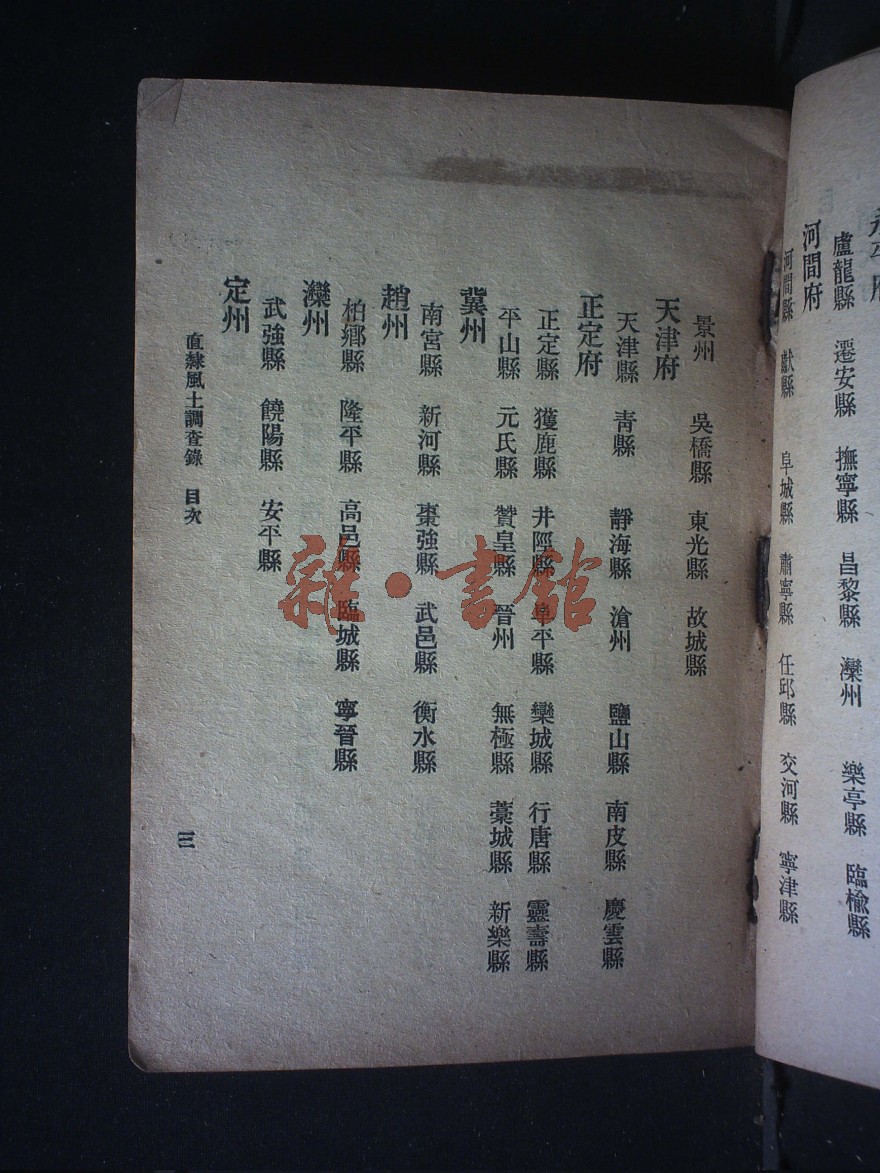 永平府
盧龍縣 遷安縣 撫寧縣 昌黎縣 灤州 樂亭縣 臨榆縣
河間府
河間縣 獻縣 阜城縣 肅寧縣 任邱縣 交河縣 寧津縣
景州 吳橋縣 東光縣 故城縣
天津府
天津縣 靑縣 靜海縣 滄州 鹽山縣 南皮縣 慶雲縣
正定府
正定縣 獲鹿縣 井陘縣 阜平縣 欒城縣 行唐縣 靈壽縣
平山縣 元氏縣 贊皇縣 晉州 無極縣 藁城縣 新樂縣
冀州
南宮縣 新河縣 棗強縣 武邑縣 衡水縣
趙州
柏鄉縣 隆平縣 高邑縣 臨城縣 寧晉縣
灤州
武強縣 饒陽縣 安平縣
定州
直隸風土調查錄 目次
三
雜·書館